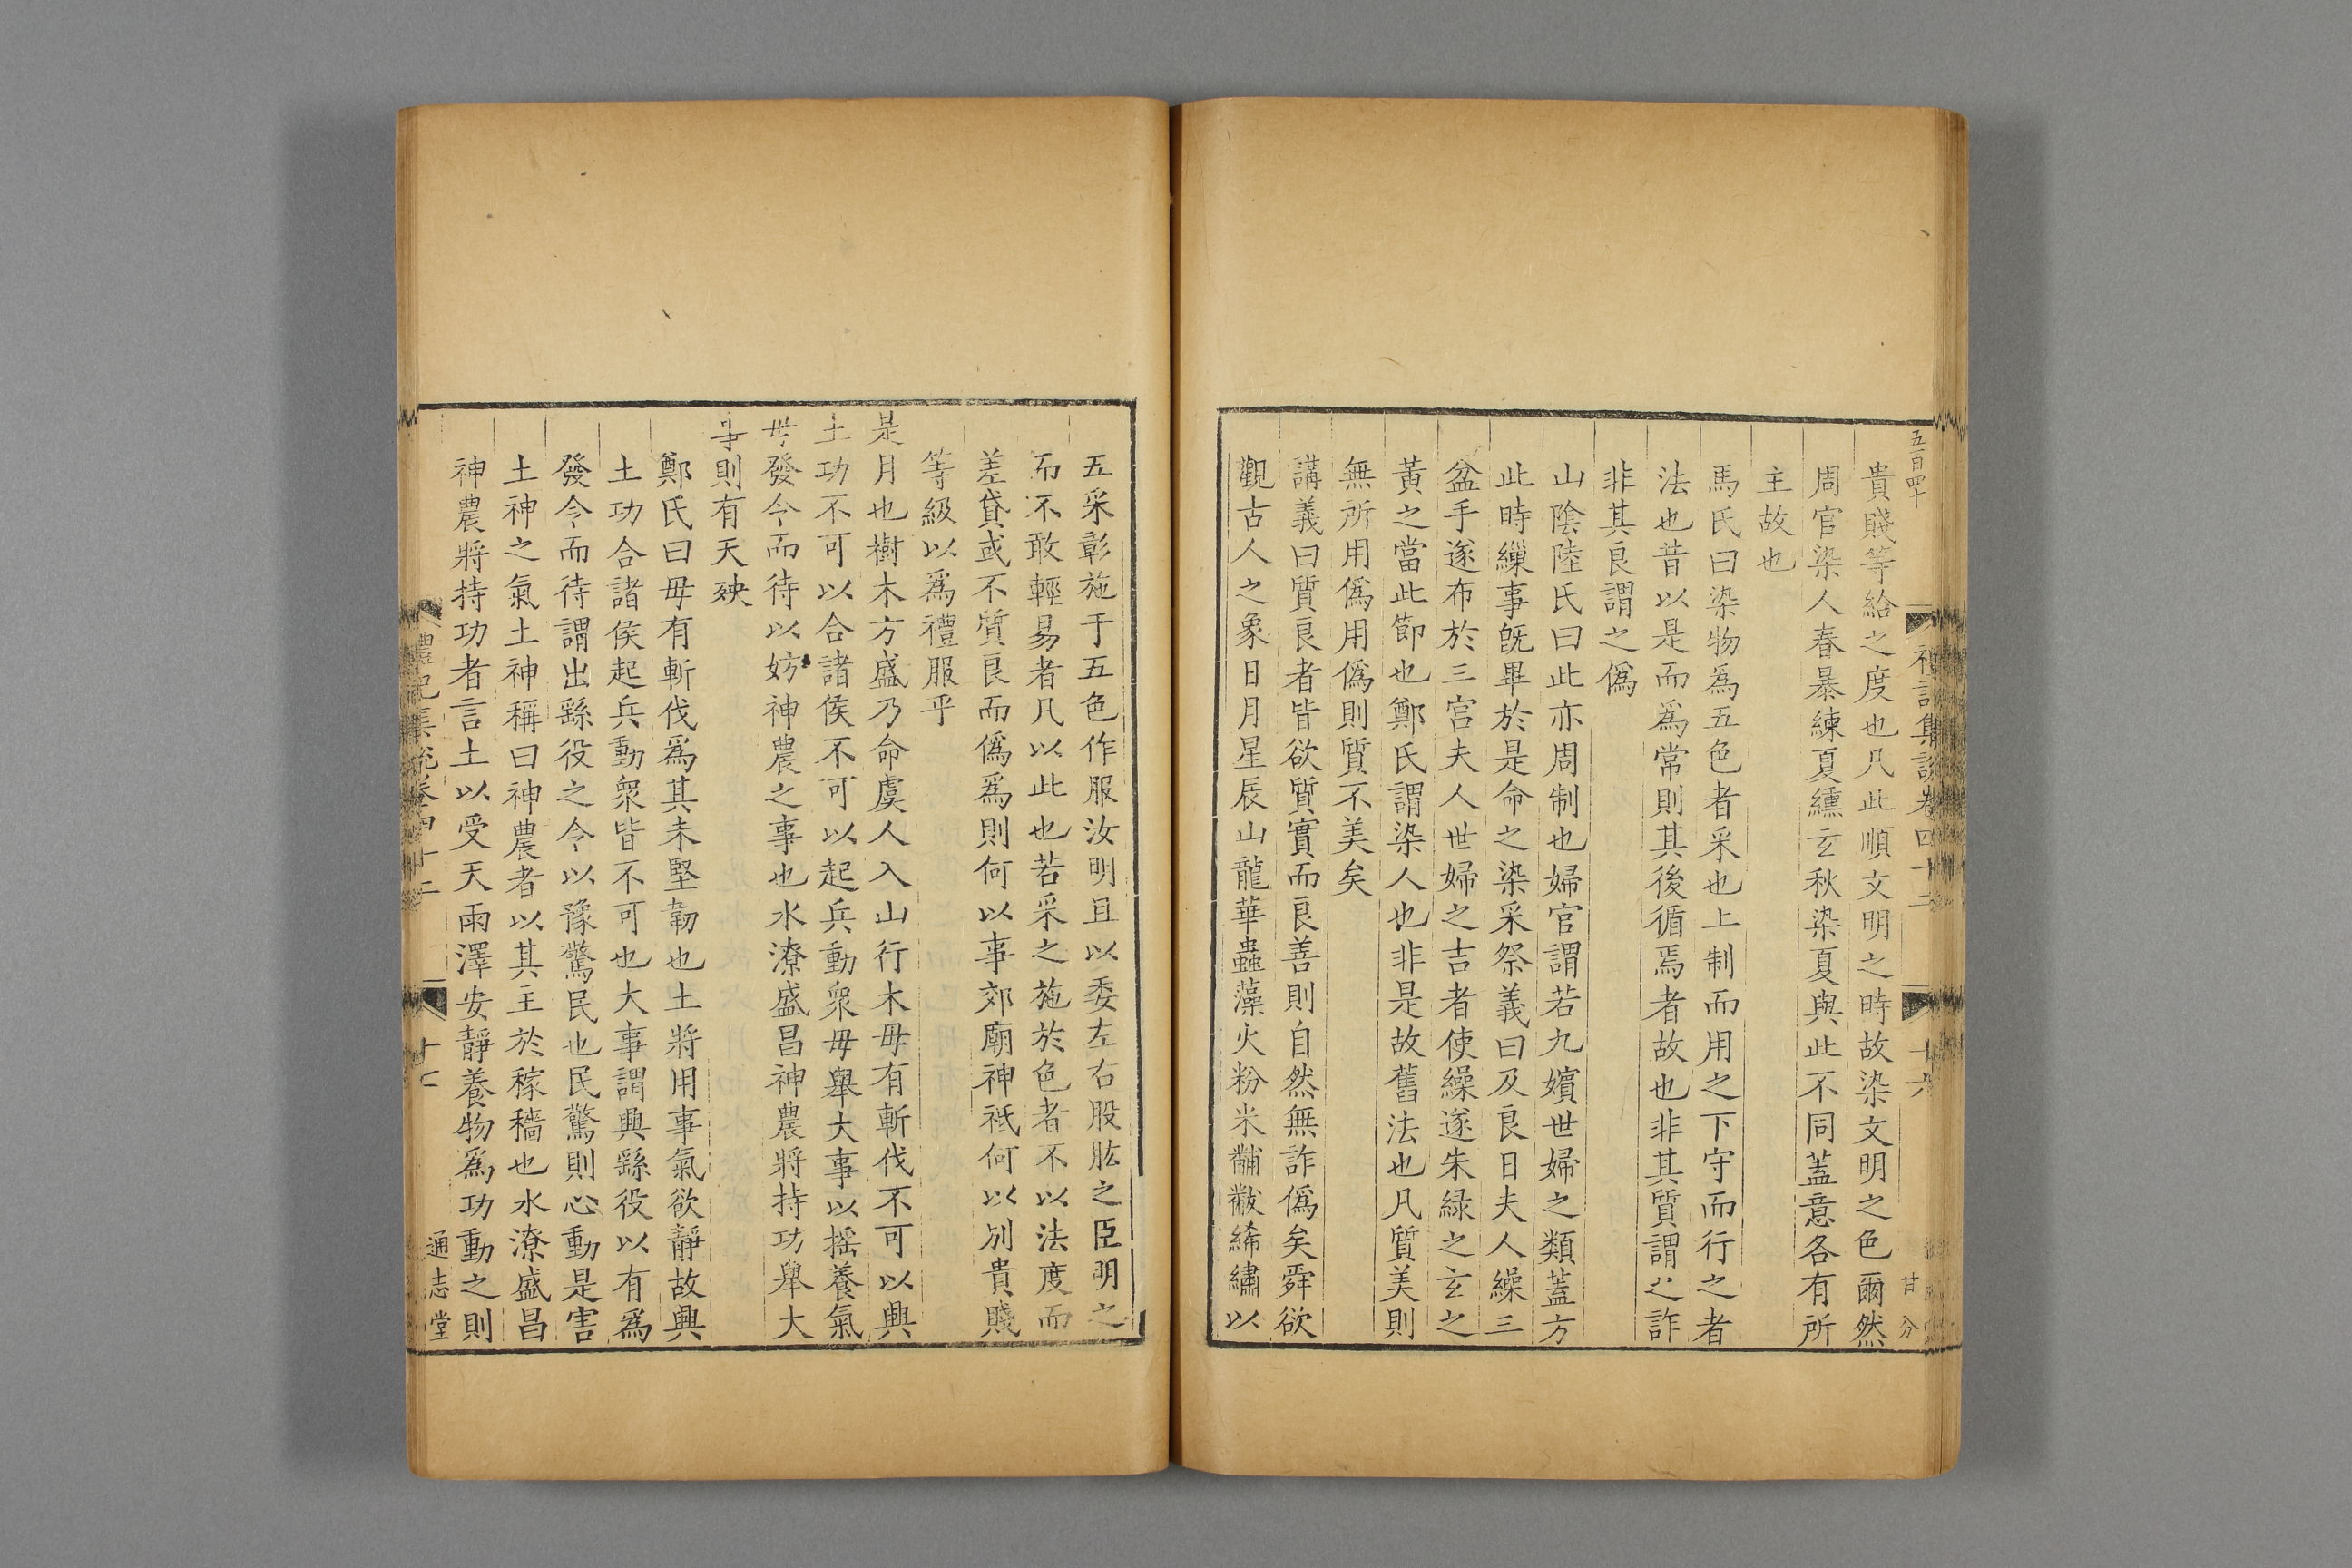 五百四十
禮記集說卷四十二
十六
甘分
貴賤等給之度也凡此順文明之時故染文明之色爾然
周官染人春暴練夏纁玄秋染夏與此不同蓋意各有所
主故也
馬氏曰染物為五色者采也上制而用之下守而行之者
法也昔以是而為常則其後循焉者故也非其質謂之詐
非其良謂之偽
山陰陸氏曰此亦周制也婦官謂若九嬪世婦之類蓋方
此時繅事旣畢於是命之染采祭義曰及良日夫人繰三
盆手遂布於三宮夫人世婦之吉者使繰遂朱緑之玄之
黃之當此節也鄭氏謂染人也非是故舊法也凡質美則
無所用偽用偽則質不美矣
講義曰質良者皆欲質實而良善則自然無詐偽矣舜欲
觀古人之象日月星辰山龍華蟲藻火粉米黼黻絺繡以
五采彰施于五色作服汝明且以委左右股肱之臣明之
而不敢輕易者凡以此也若采之施於色者不以法度而
差貸或不質良而偽爲則何以事郊廟神祇何以別貴賤
等級以爲禮服乎
是月也樹木方盛乃命虞人入山行木毋有斬伐不可以興
土功不可以合諸侯不可以起兵動衆毋舉大事以搖養氣
毋發令而待以妨神農之事也水潦盛昌神農將持功舉大
事則有天殃
鄭氏曰毋有斬伐爲其未堅韌也土將用事氣欲靜故興
土功合諸侯起兵動衆皆不可也大事謂興繇役以有爲
發令而待謂出繇役之令以豫驚民也民驚則心動是害
土神之氣土神稱曰神農者以其主於稼穡也水潦盛昌
神農將持功者言土以受天雨澤安靜養物爲功動之則
禮記集說卷四十二
十七
通志堂